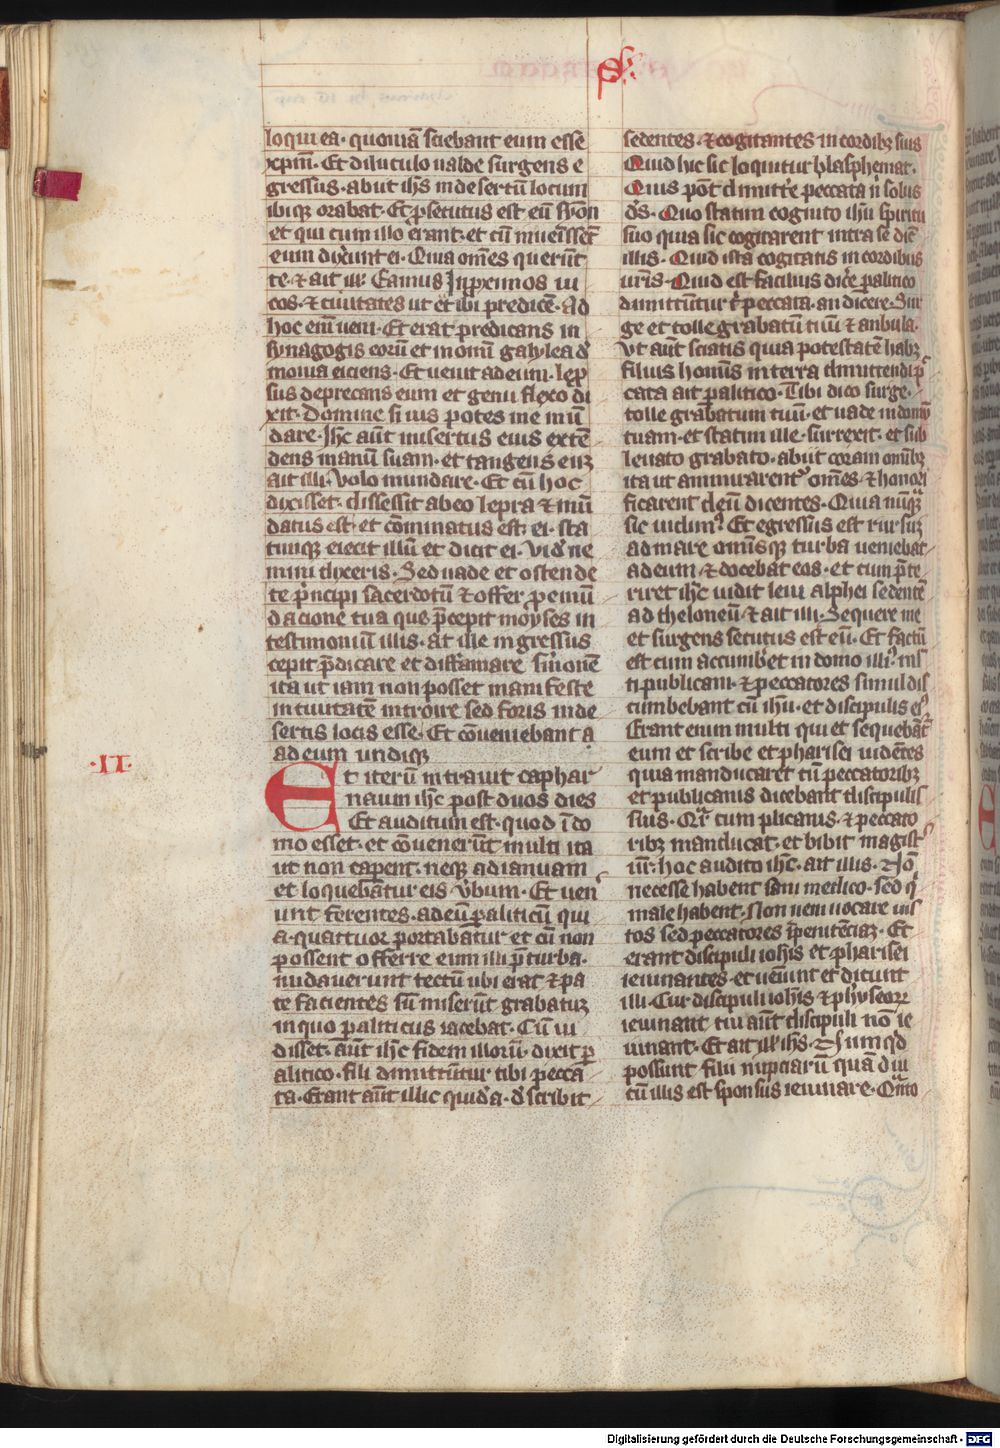 S.
loqui ea. quoniā sciebant eum esse
xpm̄. Et diluculo ualde surgens e
gressus. abiit ih̄s in desertū locum
ibiqȝ orabat. Et p̱secutus est eū symon
et qui cum illo erant. et cū inuenissēt
eum dixerunt ei. Quia om̄es querūt
te. ⁊ ait ill̄. Eamus In proximos ui
cos. ⁊ ciuitates ut et ibi predicē. Ad
hoc eni᷒ ueni. Et erat predicans in
synagogis eorū et in omni galylea de
monia eiciens. Et uenit ad eum. lep̱
sus deprecans eum et genu flexo di
xit. Domine si uis potes me mū
dare. Ih̄c aūt misertus eius extē
dens manū suam. et tangens eūȝ
ait illi. Volo mundare. Et cū hoc
dixisset. dissessit ab eo lepra ⁊ mū
datus est. et cōminatus est. ei. sta
timqȝ eiecit illū et dicit ei. Vide ne
mini dixeris. Sed uade et ostende
te p̄ncipi sacerdotū ⁊ offer pro emū
dacione tua que p̄cepit moyses in
testimoniū illis. At ille ingressus
cepit p̄dicare et diffamare sermonē
ita ut iam non posset manifeste
in ciuitatē introire sed foris in de
sertis locis esse. Et cōueniebant a
ad eum undiqȝ
·II·
Et iterū intrauit caphar
naum ih̄c post duos dies
Et auditum est. quod ī do
mo esset. et cōuenerūt multi ita
ut non caperēt. neqȝ ad ianuam
et loquebatur eis u̾bum. Et ueni
unt ferentes. ad eū p̱aliticū qui
a. quattuor portabatur et cū non
possent offerre eum illi p̄ turba.
nudauerunt tectū ubi erat ⁊ pa
te facientes sūmiserūt grabatuȝ
in quo p̱aliticus iacebat. Cū ui
disset. aūt ih̄c fidem illorū. dixit p̱
alitico. fili dimittūtur tibi pecca
ta. Erant aūt illic quida. de scribis
sedentes. ⁊ cogitantes in cordibȝ suis
Quid hic sic loquitur blasphemat.
Quis pōt dimittere peccata n̄ solus
d̄s. Quo statim cognito ihū spiritu
suo quia sic cogitarent intra se dic̄
illis. Quid ista cogitatis in cordibus
ur̄is. Quid est facilius dic̄e p̱alitico
dimittūtur t' peccata. an dicere. Sur
ge et tolle grabatū tuū ⁊ anbula.
Vt aūt sciatis quia potestatē habȝ
filius hominis in terra dimittendi p̱
cata ait p̱alitico. Tibi dico surge.
tolle grabatum tuū. et uade in domū
tuam. et statim ille. surrexit. et sub
leuato grabato. abiit coram omībȝ
ita ut ammirarent᷒ om̄es. ⁊ honori
ficarent deū dicentes. Quia nūqᷓ
sic uidim᷒. Et egressus est rursuȝ
ad mare omīsqȝ turba ueniebat
ad eum. ⁊ docebat eos. et cum p̄te
riret ih̄c uidit leui alphei sedentē
ad theloneū. ⁊ ait illi. Sequere me
et surgens secutus est eū. Et factū
est cum accumbet in domo illi᷒. mi
ti publicani. ⁊ peccatores simul dis
cumbebant cū ihū. et discipulis ei᷒
Erant enim multi qui et sequebāt᷒
eum et scribe et pharisei uidētes
quia manducaret cū peccatoribȝ
et publicanis dicebant discipulis
suis. Qr̄ cum plicanis. ⁊ peccato
ribȝ manducat. et bibit magist᷒
ur̄. hoc audito ih̄c. ait illis. Nō
necesse habent sani medico. sed q
male habent. Non ueni uocare ius
tos sed peccatores ī penitēciaȝ. Et
erant discipuli ioh̄is et pharisei
ieiunantes. et ueniūt et dicunt
illi. Cur discipuli ioh̄is ⁊ physeorꝝ
ieiunant tui aūt discipuli nō ie
iunant. Et ait ill̄ ih̄s. Nūmqd
possunt filii nupciarū quādiu
cū illis est sponsus ieiunare. Qᷓnto
Digitalisierung gefördert durch die Deutsche Forschungsgemeinschaft - DFG